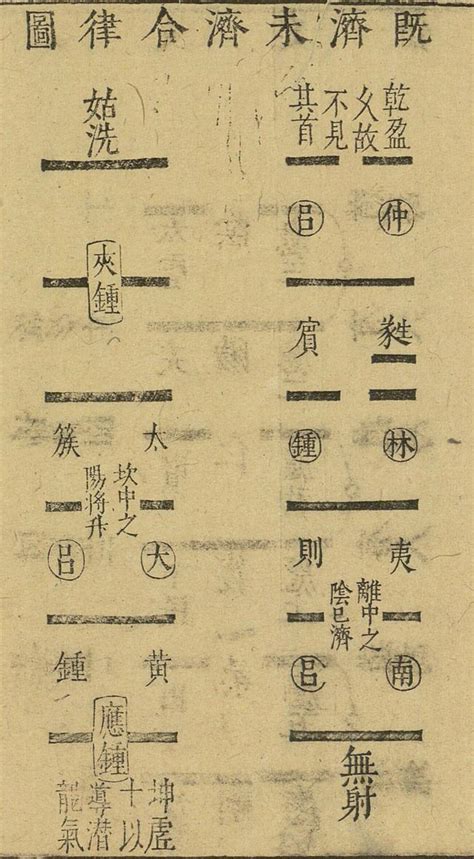 既濟未濟合律圖
乾盈
九故
不見
其首
仲呂
蕤賓
林鍾
夷則
離中之
陰已濟
南呂
無射
姑洗
夾鍾
太簇
坎中之
陽將升
大呂
黃鍾
應鍾
坤虛
十以
導潛
龍氣